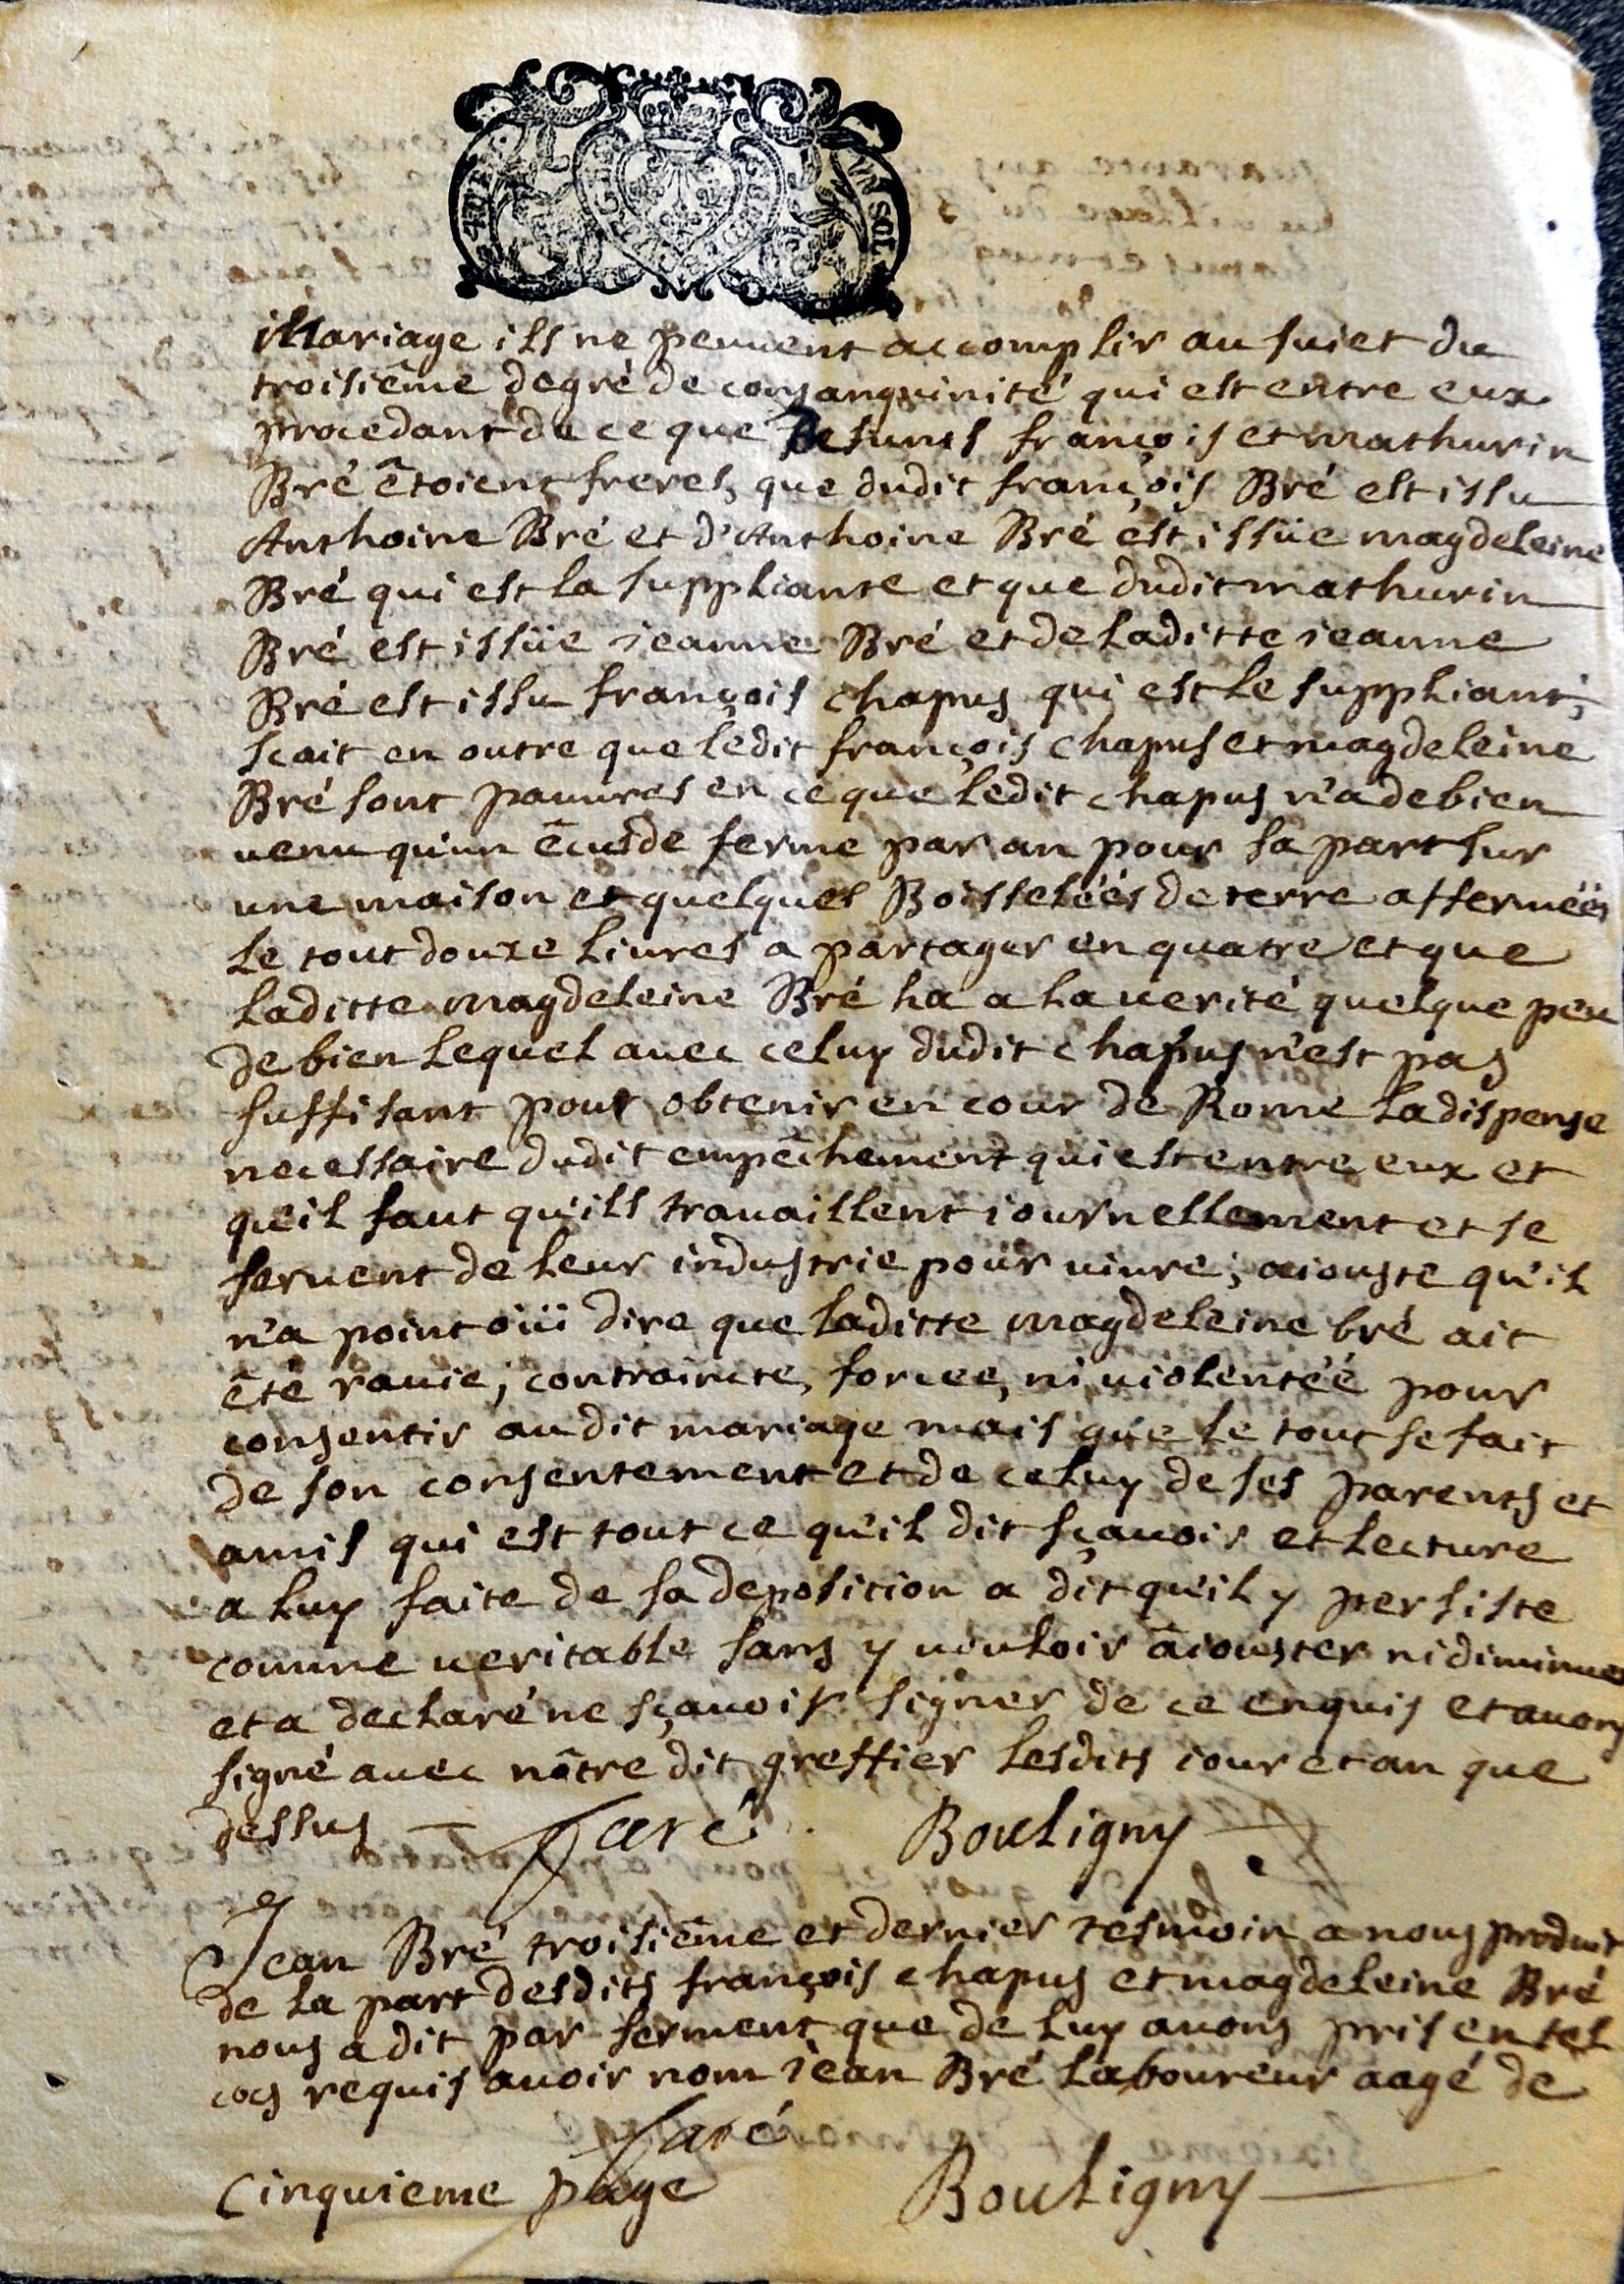 UN SOL
Mariage ils ne peuuent accomplir au suiet du
troisiême degré de consanguinité qui est entre eux
procedant de ce que Defunts françois et mathurin
Bré êtoient freres, que dudit françois Bré est issu
Anthoine Bré et d'Anthoine Bré est issüe magdeleine
Bré qui est la suppliante et que dudit mathurin
Bré est issüe ieanne Bré et de laditte ieanne
Bré est issu françois chapus qui est le suppliant;
scait en outre que ledit françois chapus et magdeleine
Bré sont pauures en ce que ledit chapus n'a de bien
uenu qu'un êcus de ferme par an pour sa part sur
une maison et quelques Boisselées de terre affermées
le tout douze liures a partager en quatre et que
laditte magdeleine Bré ha a la uerité quelque peu
de bien lequel auec celuy dudit chapus n'est pas
suffisant pour obtenir en cour de Rome la dispense
necessaire dudit empêchement qui est entre eux et
qu'il faut qu'ils trauaillent iournellement et se
seruent de leur industrie pour uiure; aiouste qu'il
n'a point oüi dire que laditte magdeleine bré ait
êté rauie, contraincte, forcee, ni uiolentée pour
consentir au dit mariage mais que le tout se fait
de son consentement et de celuy de ses parents et
amis qui est tout ce qu'il dit sçauoir et lecture
a luy faite de sa deposition a dit qu'il y persiste
comme ueritable sans y uouloir âiouster ni diminuer
et a declaré ne sçauoir signer de ce enquis et auons
signé auec nôtre dit greffier lesdits iour et an que
dessus Bouligny
Jean Bré troisiême et dernier tesmoin a nous produit
de la part desdits françois chapus et magdeleine Bré
nous a dit par serment que de luy auons pris en tel
cas requis auoir nom iean Bré laboureur aagé de
Cinquieme page Bouligny